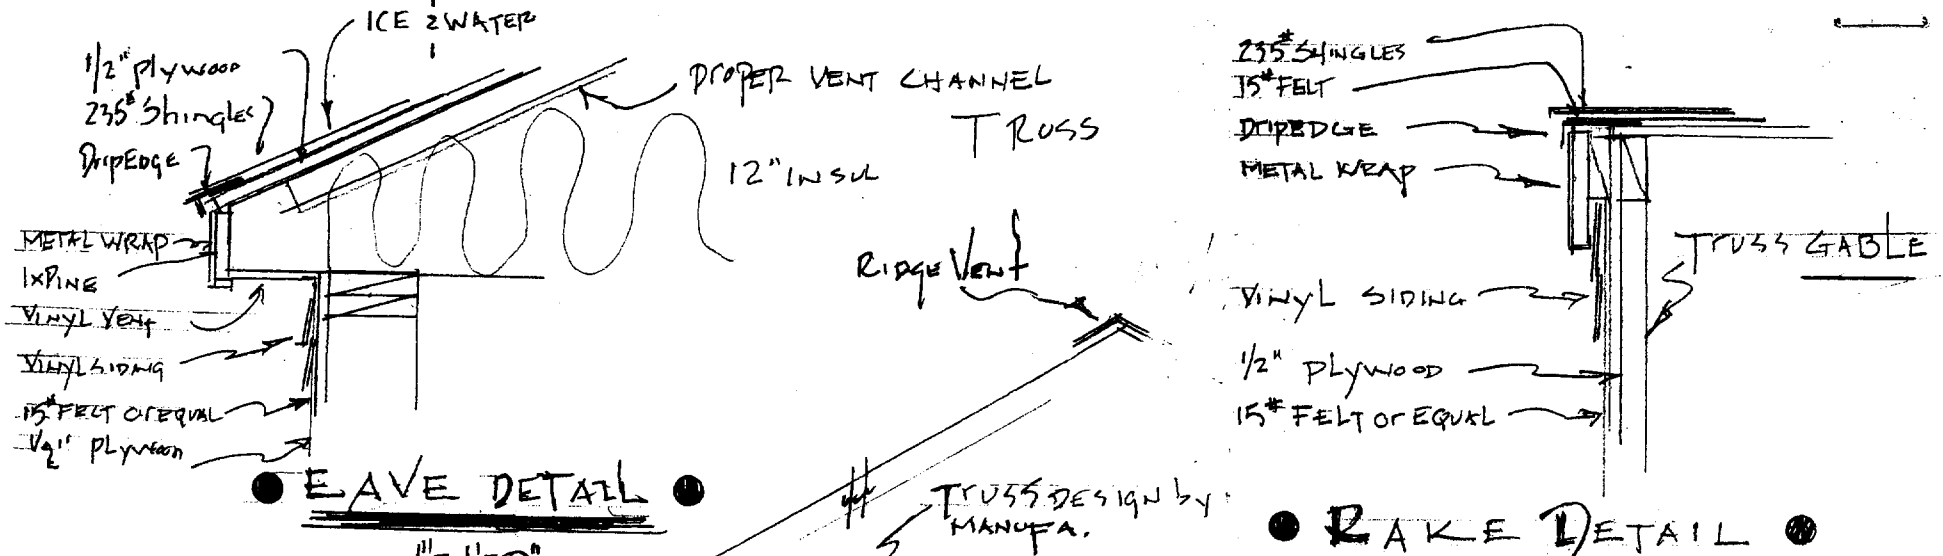 ICE & WATER
1/2" plywood
235# Shingles
DripEDGE
PROPER VENT CHANNEL
TRUSS
12" INSUL
METAL WRAP
1xPINE
VINYL VENT
VINYL SIDING
15# FELT or EQUAL
1/2" PLywood
EAVE DETAIL
RIDGE VENT
TRUSS DESIGN by
MANUFA.
235# SHINGLES
15# FELT
DRIPEDGE
METAL WRAP
TRUSS GABLE
VINYL SIDING
1/2" PLYWOOD
15# FELT or EQUAL
RAKE DETAIL